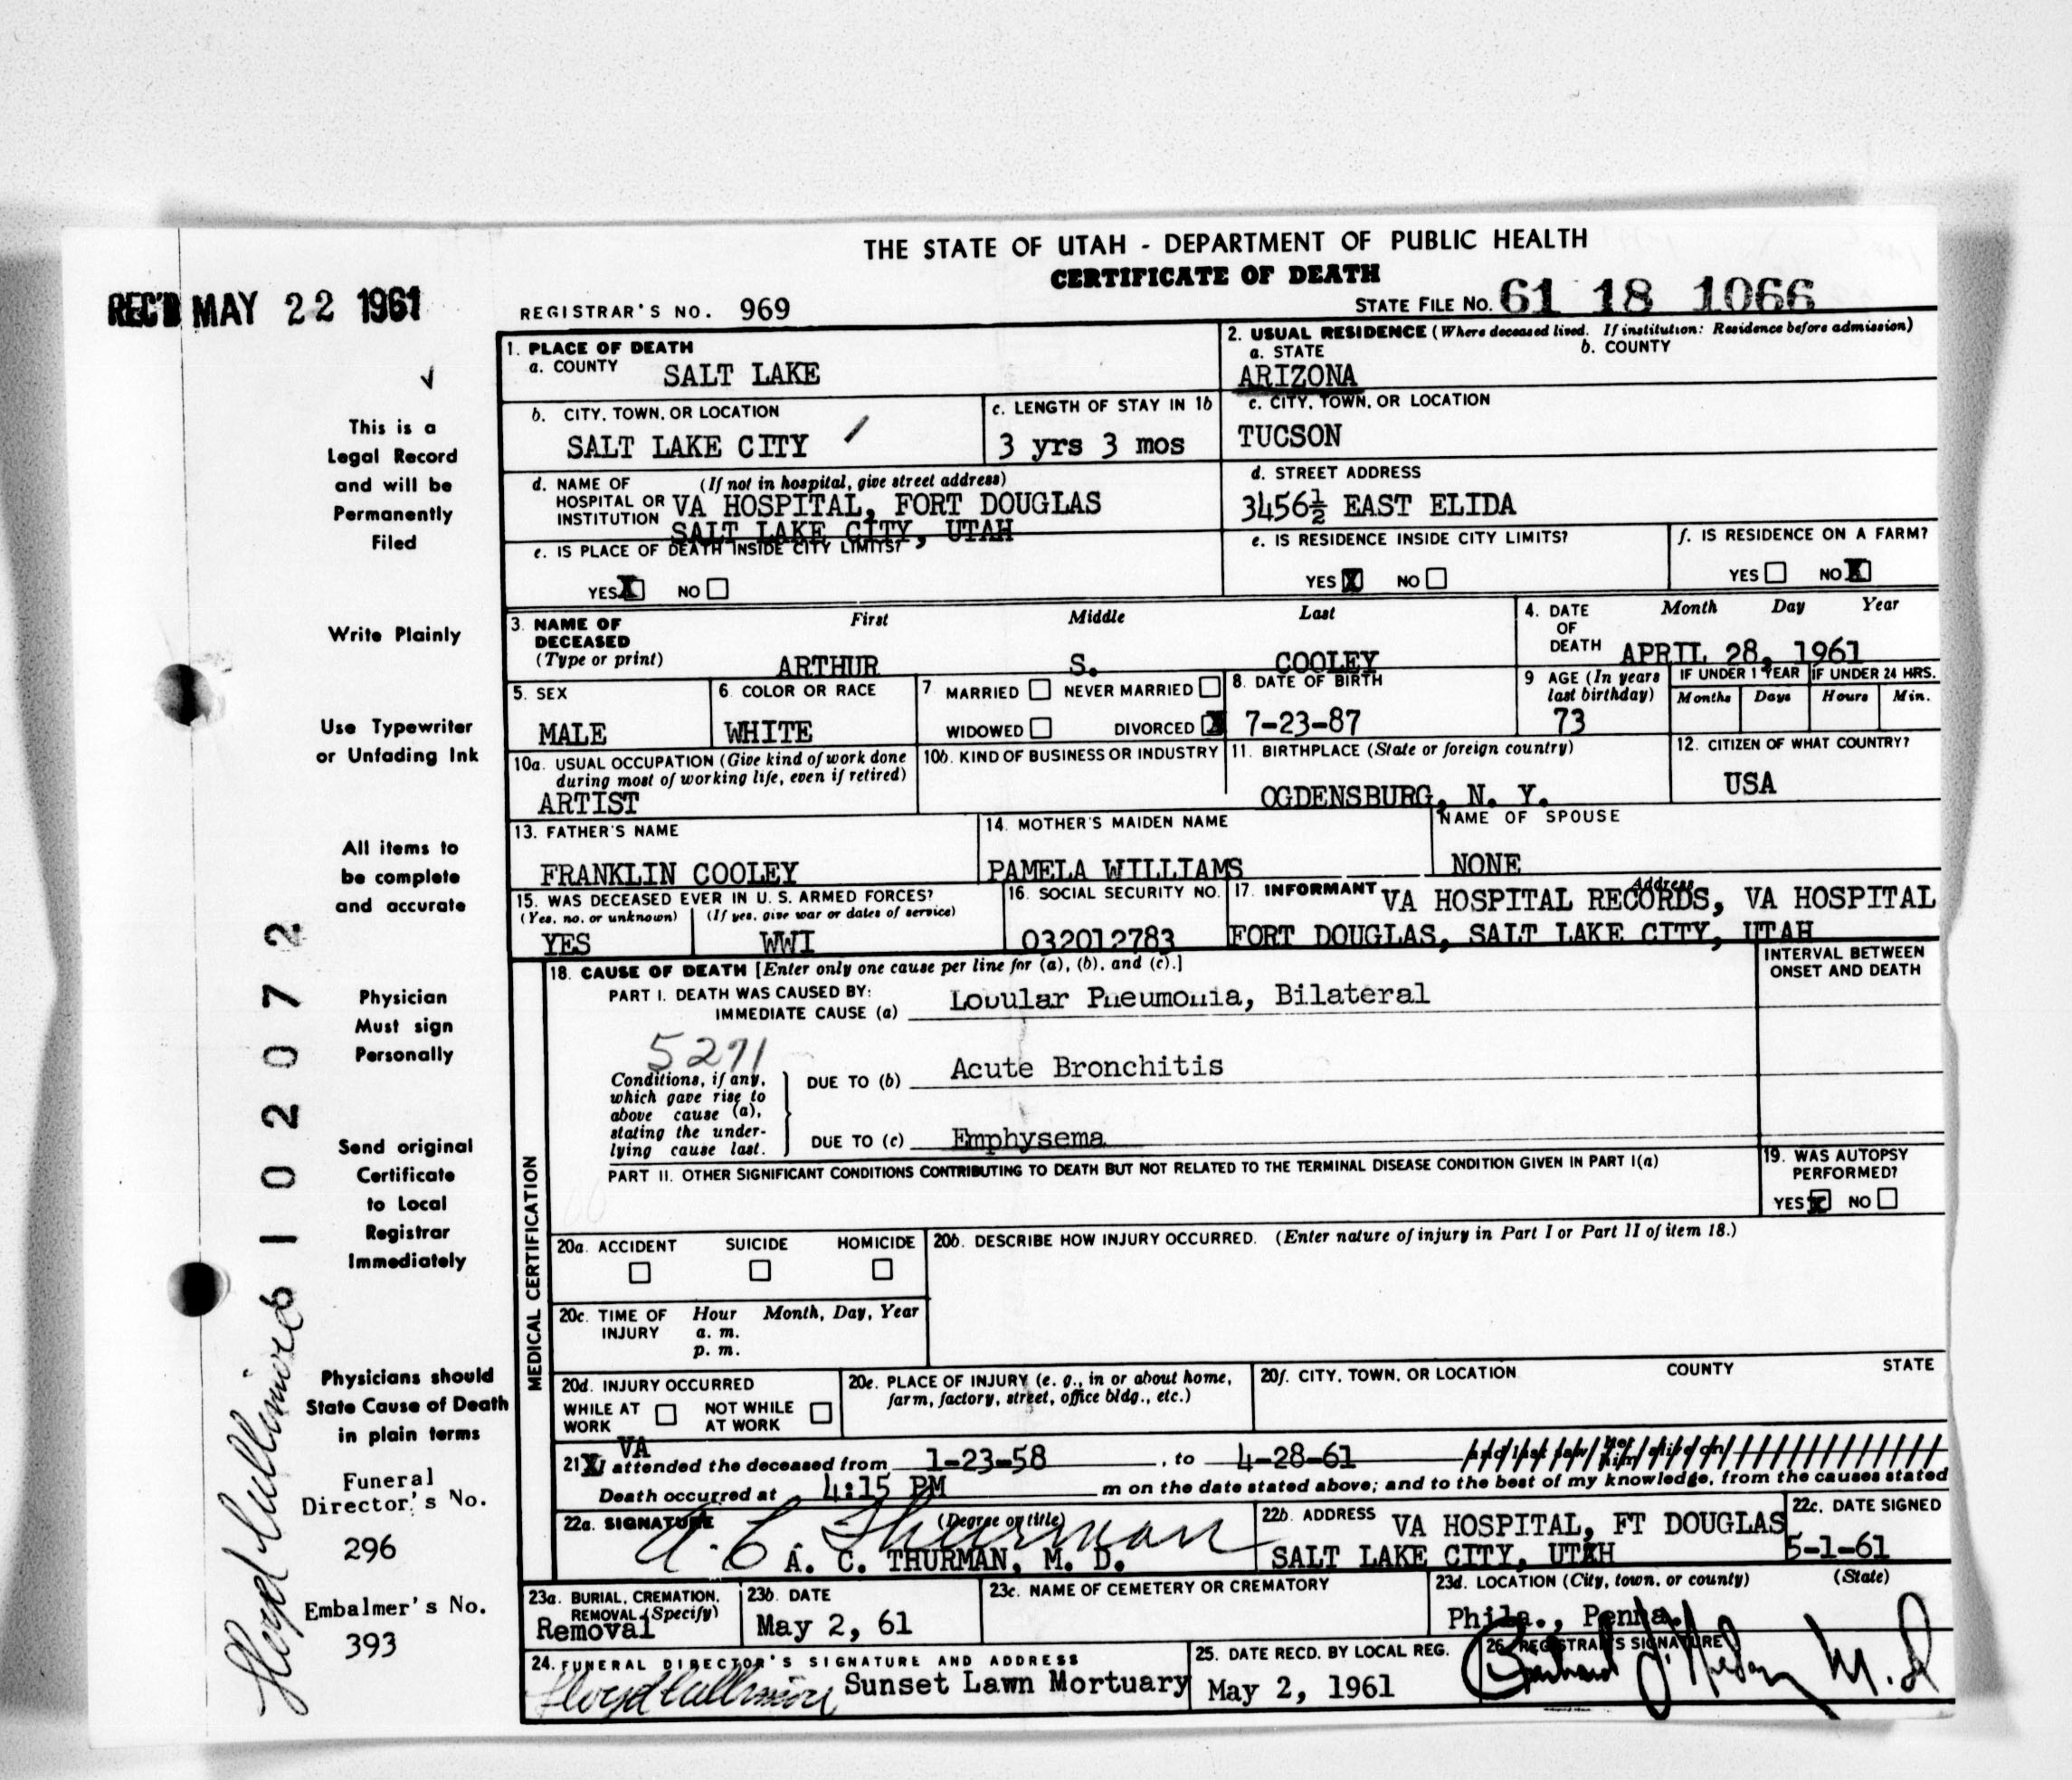 THE STATE OF UTAH - DEPARTMENT OF PUBLIC HEALTH
CERTIFICATE OF DEATH
REC'D MAY 22 1961
REGISTRAR'S NO. 969
STATE FILE NO. 61 18 1066
1. PLACE OF DEATH
a. COUNTY SALT LAKE
2. USUAL RESIDENCE (Where deceased lived. If institution: Residence before admission)
a. STATE b. COUNTY
ARIZONA
b. CITY, TOWN, OR LOCATION
SALT LAKE CITY
c. LENGTH OF STAY IN 1b
3 yrs 3 mos
c. CITY, TOWN, OR LOCATION
TUCSON
d. NAME OF (If not in hospital, give street address)
HOSPITAL OR VA HOSPITAL, FORT DOUGLAS
INSTITUTION SALT LAKE CITY, UTAH
d. STREET ADDRESS
3456½ EAST ELIDA
e. IS PLACE OF DEATH INSIDE CITY LIMITS?
YES X NO
e. IS RESIDENCE INSIDE CITY LIMITS?
YES X NO
f. IS RESIDENCE ON A FARM?
YES NO X
3. NAME OF DECEASED (Type or print)
First Middle Last
ARTHUR S. COOLEY
4. DATE OF DEATH
Month Day Year
APRIL 28, 1961
5. SEX
MALE
6. COLOR OR RACE
WHITE
7. MARRIED NEVER MARRIED
WIDOWED DIVORCED X
8. DATE OF BIRTH
7-23-87
9 AGE (In years last birthday)
73
IF UNDER 1 YEAR
Months Days
IF UNDER 24 HRS.
Hours Min.
10a. USUAL OCCUPATION (Give kind of work done
during most of working life, even if retired)
ARTIST
10b. KIND OF BUSINESS OR INDUSTRY
11. BIRTHPLACE (State or foreign country)
OGDENSBURG, N. Y.
12. CITIZEN OF WHAT COUNTRY?
USA
13. FATHER'S NAME
FRANKLIN COOLEY
14. MOTHER'S MAIDEN NAME
PAMELA WILLIAMS
NAME OF SPOUSE
NONE
15. WAS DECEASED EVER IN U. S. ARMED FORCES?
(Yes, no, or unknown) (If yes, give war or dates of service)
YES WWI
16. SOCIAL SECURITY NO.
032012783
17. INFORMANT Address
VA HOSPITAL RECORDS, VA HOSPITAL
FORT DOUGLAS, SALT LAKE CITY, UTAH
MEDICAL CERTIFICATION
18. CAUSE OF DEATH [Enter only one cause per line for (a), (b), and (c).]
INTERVAL BETWEEN
ONSET AND DEATH
PART I. DEATH WAS CAUSED BY:
IMMEDIATE CAUSE (a) Lobular Pneumonia, Bilateral
5271
Conditions, if any,
which gave rise to
above cause (a),
stating the under-
lying cause last.
DUE TO (b) Acute Bronchitis
DUE TO (c) Emphysema
PART II. OTHER SIGNIFICANT CONDITIONS CONTRIBUTING TO DEATH BUT NOT RELATED TO THE TERMINAL DISEASE CONDITION GIVEN IN PART I(a)
19. WAS AUTOPSY
PERFORMED?
YES X NO
20a. ACCIDENT SUICIDE HOMICIDE
20b. DESCRIBE HOW INJURY OCCURRED. (Enter nature of injury in Part I or Part II of item 18.)
20c. TIME OF INJURY
Hour Month, Day, Year
a. m.
p. m.
20d. INJURY OCCURRED
WHILE AT WORK NOT WHILE AT WORK
20e. PLACE OF INJURY (e. g., in or about home,
farm, factory, street, office bldg., etc.)
20f. CITY, TOWN, OR LOCATION COUNTY STATE
VA
21. I attended the deceased from 1-23-58, to 4-28-61 and last saw her him alive on
Death occurred at 4:15 PM m on the date stated above; and to the best of my knowledge, from the causes stated
22a. SIGNATURE (Degree or title)
A C Thurman
A. C. THURMAN, M. D.
22b. ADDRESS VA HOSPITAL, FT DOUGLAS
SALT LAKE CITY, UTAH
22c. DATE SIGNED
5-1-61
23a. BURIAL, CREMATION,
REMOVAL (Specify)
Removal
23b. DATE
May 2, 61
23c. NAME OF CEMETERY OR CREMATORY
23d. LOCATION (City, town, or county) (State)
Phila., Penna.
24. FUNERAL DIRECTOR'S SIGNATURE AND ADDRESS
Floyd Cullimore Sunset Lawn Mortuary
25. DATE RECD. BY LOCAL REG.
May 2, 1961
26. REGISTRAR'S SIGNATURE
M.D
This is a
Legal Record
and will be
Permanently
Filed
Write Plainly
Use Typewriter
or Unfading Ink
All items to
be complete
and accurate
Physician
Must sign
Personally
Send original
Certificate
to Local
Registrar
Immediately
Physicians should
State Cause of Death
in plain terms
Funeral
Director's No.
296
Embalmer's No.
393
6102072
Floyd Cullimore